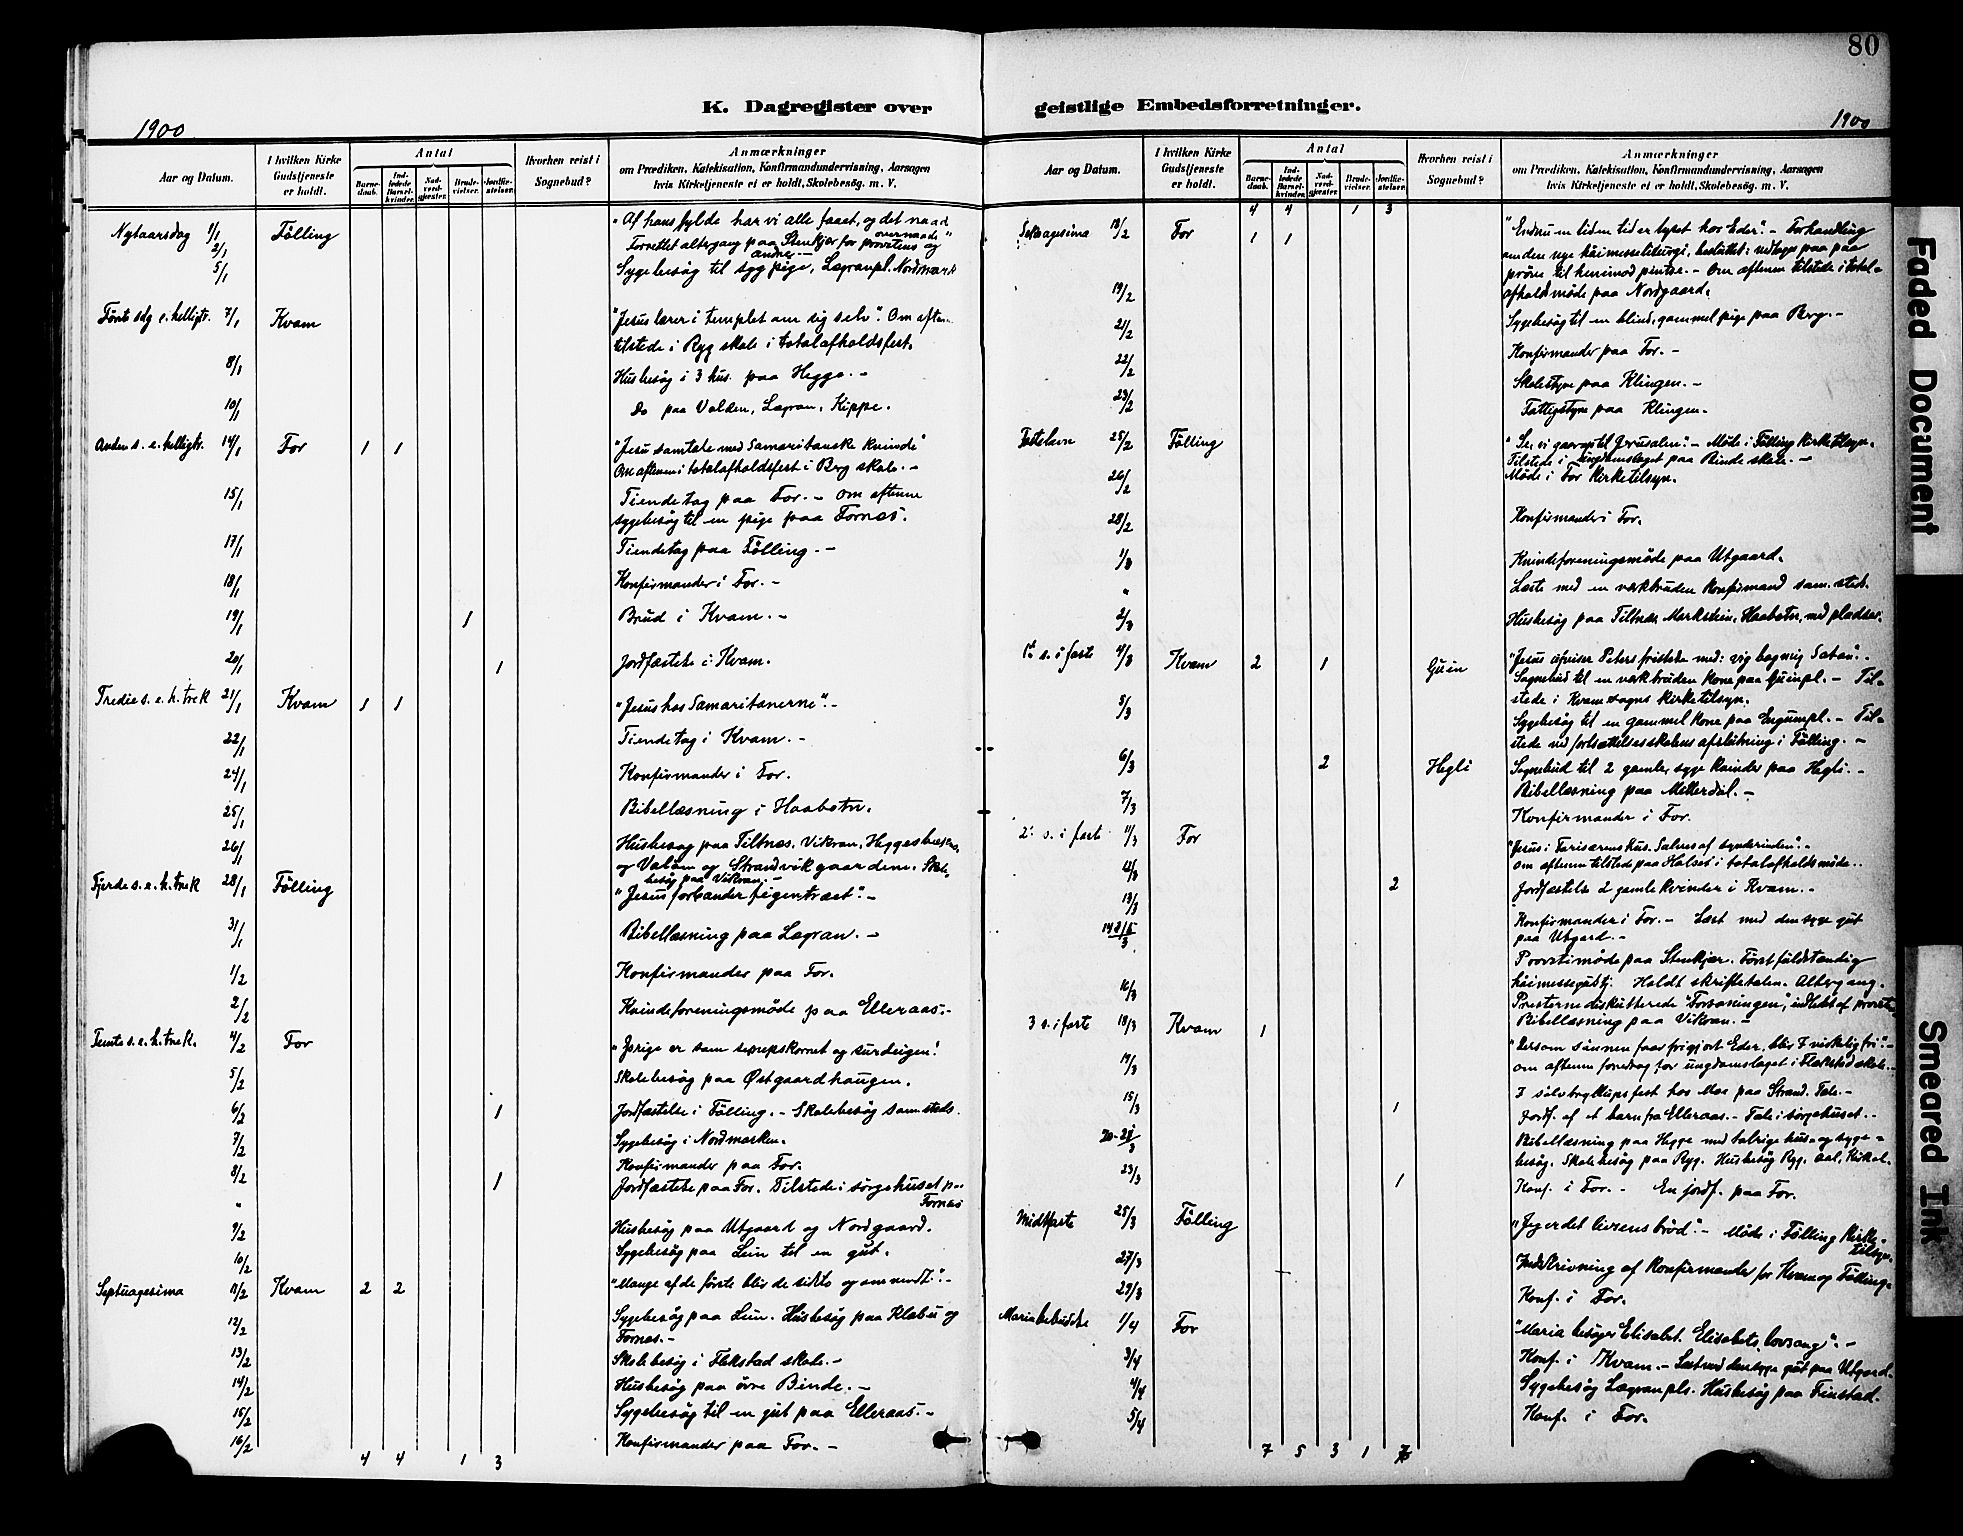 80
K. Dagregister over geistlige Embedsforretninger.
1900
1900
Aar og Datum.
I hvilken Kirke Gudstjeneste er holdt.
Antal
Barnedaab.
Indledede Barselkvinder.
Nadverdgjester.
Brudevielser.
Jordfæstelser.
Hvorhen reist i Sognebud?
Anmærkninger
om Prædiken, Katekisation, Konfirmandundervisning, Aarsagen
hvis Kirketjeneste ei er holdt, Skolebesøg. m. V.
Nytaarsdag 1/1 Fölling "Af hans fylde har vi alle faaet, og det naad overnaade"
2/1 Forrettet altergang paa Stenkjær for provstens og andre –
5/1 Sygebesøg til syg pige, Lægranpl. Nordmark
Förste sdg e. helligtr. 7/1 Kvam "Jesus lærer i templet om sig selv". Om aften
tilstede i Ryg skole i totalafholdsfest.
8/1 Husbesøg i 3 hus. paa Hegge. –
10/1 Do paa Valden, Lægran, Kippe.
Anden s. e. helligtr. 14/1 For 1 1 "Jesu samtale med Samaritanske kvinde"
Om aftenen i totalafholdsfest i Berg skole. –
15/1 Tiendetag paa For. – Om aftenen
sygebesøg til en pige paa Fornes.
17/1 Tiendetag paa Fölling. –
18/1 Konfirmander i For. –
19/1 1 Brud i Kvam. –
20/1 1 Jordfæstelse i Kvam.
Tredie s. e. h. trek 21/1 Kvam 1 1 "Jesus hos Samaritanerne". –
22/1 Tiendetag i Kvam. –
24/1 Konfirmander i For.
25/1 Bibellæsning i Haabotn.
26/1 Husbesøg paa Tiltnes, Vikran,
og Strandvikgaardene. Skolebesøg paa Vikran. –
Fjerde s. e. h. trek 28/1 Fölling "Jesus forbander figentræet". –
31/1 Bibellæsning paa Lægran. –
1/2 Konfirmander paa For.
2/2 Kvindeforeningsmöde paa Elleraas. –
Femte s. e. h. trek. 4/2 For er som sennepskornet og surdeigen!
5/2 Skolebesøg paa Østgaardhaugen.
6/2 1 Jordfæstelse i Fölling. – Skolebesøg sammesteds.
7/2 Sygebesøg i Nordmarken.
8/2 Konfirmander paa For.
" 1 Jordfæstelse paa For. Tilstede i sørgehuset paa Fornes
9/2 Husbesøg paa Utgaard og Nordgaard.
10/2 Sygebesøg paa Lein til en gut.
Septuagesima 11/2 Kvam 2 2 "Mange af de förste blir de sidste og omvendt." –
12/2 Sygebesøg paa Lein. Husbesøg paa Klæbu og
Fornes. –
13/2 Skolebesøg i Flekstad skole. –
14/2 Husbesøg paa övre Binde. –
15/2 Sygebesøg til en gut paa Elleraas. –
16/2 Konfirmander paa For. –
4 4 1 3
Aar og Datum.
I hvilken Kirke Gudstjeneste er holdt.
Antal
Barnedaab.
Indledede Barselkvinder.
Nadverdgjester.
Brudevielser.
Jordfæstelser.
Hvorhen reist i Sognebud?
Anmærkninger
om Prædiken, Katekisation, Konfirmandundervisning, Aarsagen
hvis Kirketjeneste ei er holdt, Skolebesøg. m. V.
4 4 1 3
Seksagesima 18/2 For 1 1 "Endnu en liden tid er lyset hos Eder". – Forhandling
om den nye höimesseliturgi, besluttet: vedtages paa
pröve til henimod pintse. – Om aftenen tilstede i total-
afholdsmöde paa Nordgaard.
19/2 Sygebesøg til en blind, gammel pige paa Berg. –
21/2 Konfirmander paa For. –
22/2 Skolestyre paa Klingen. –
23/2 Fattigstyre paa Klingen.
Fastelavn 25/2 Fölling "Se, vi gaar op til Jerusalem". – Möde i Fölling Kirketilsyn.
Tilstede i ungdomslaget paa Binde skole. –
26/2 Möde i For Kirketilsyn.
28/2 Konfirmander i For.
1/3 Kvindeforeningsmöde paa Utgaard.
" Læste med en værkbruden konfirmand sam. sted.
2/3 Husbesøg paa Tiltnes, Markstein, Haabotn, med pladser.
1ste s. i faste 4/3 Kvam 2 1 Guin "Jesus afviser Peters fristelse med: vig bag mig Satan". –
Sognebud til en værkbruden kone paa Guinpl. – Til-
stede i Kvam sogns kirketilsyn.
5/3 Sygebesøg til en gammel kone paa –  Til-
stede ved fortsættelsesskolens afslutning i Fölling. –
6/3 2 Hegli Sognebud til 2 gamle, syge kvinder paa Hegli. –
7/3 Bibellæsning paa Mellerdal. –
Konfirmander i For.
2. s. i faste 11/3 For "Jesus i Farisæerens hus. Salves af synderinden". –
Om aftenen tilstede paa Halset i totalafholdsmöde. –
12/3 2 Jordfæstelse 2 gamle kvinder i Kvam. –
13/3 Konfirmander i For. – Læst med den syge gut
paa Utgard. –
14 & 15/3 Provstimöde paa Stenkjær. Först fuldstændig
höimessegudstj. Holdt skriftetalen. Altergang.
Presterne diskutterede "Forsoningen", indledet af provsten
16/3 Bibellæsning paa Vikran. –
3 s. i faste 18/3 Kvam 1 "Dersom sönnen faar frigjort Eder, blir I virkelig fri". –
Om aftenen foredrag for ungdomslaget i Flekstad skole. –
19/3 I sølvbryllupsfest hos Moe paa Strand. Tale. –
15/3 1 Jordf. af et barn fra Elleraas. – Tale i sørgehuset. –
20-21/3 Bibellæsning paa Hegge med talrige hus- og syge-
besøg. Skolebesøg paa Ryg. Husbesøg Ryg,
23/3 1 Konf. i For. – En jordf. paa For.
Midtfaste 25/3 Fölling "Jeg er det livsens bröd". – Möde i Fölling Kirketilsyn.
27/3 Indskrivning af Konfirmander for Kvam og Fölling.
29/3 Konf. i For.
Maria bebudelse 1/4 For "Maria besöger Elisabet. Elisabets lovsang". –
3/4 Konf. i Kvam. – Læst med den syge gut paa Utgard.
4/4 Sygebesøg Lægranpls. Husbesøg paa Finstad.
5/4 Konf. i For.
7 5 3 1 7
Faded Document
Smeared Ink